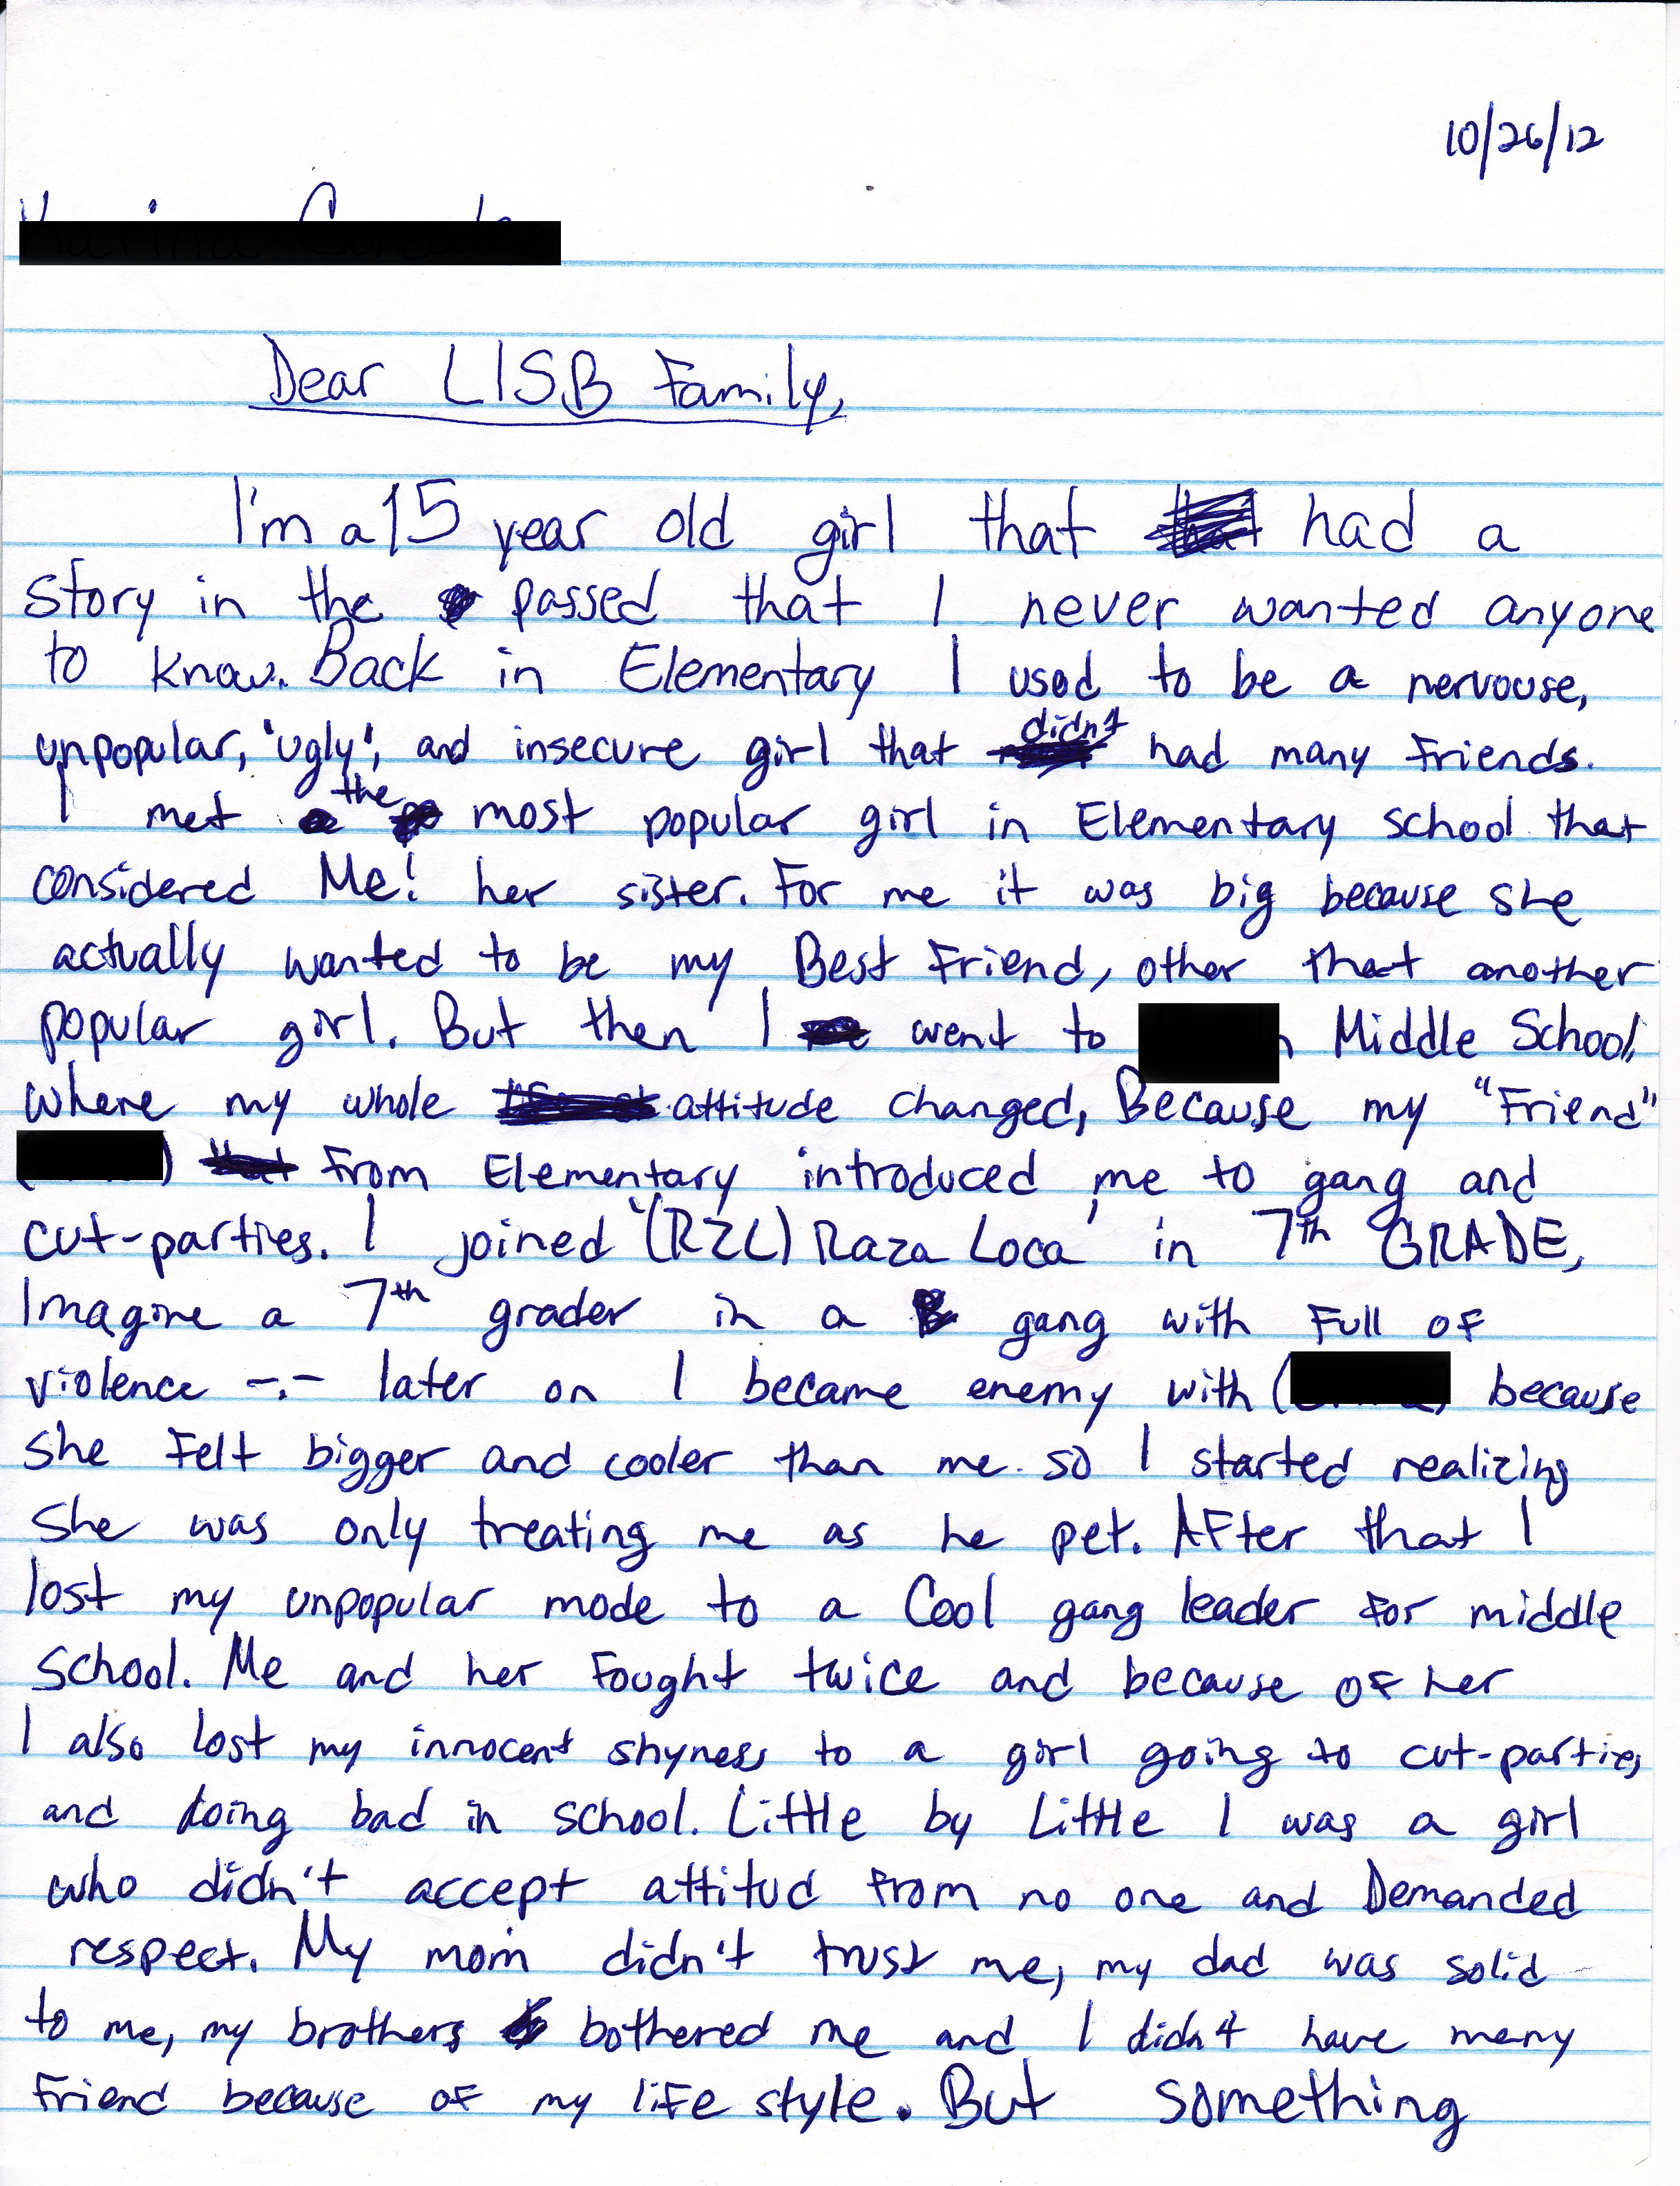 10/26/12
Dear LISB Family,
I'm a 15 year old girl that had a
story in the passed that I never wanted anyone
to know. Back in Elementary I used to be a nervouse,
unpopular, 'ugly', and insecure girl that didn't had many friends.
I met the most popular girl in Elementary school that
considered Me! her sister. For me it was big because she
actually wanted to be my Best Friend, other that another
popular girl. But then I went to Middle School,
where my whole attitude changed, Because my "Friend"
From Elementary introduced me to gang and
cut-parties. I joined "(RZL) Raza Loca" in 7th GRADE,
Imagine a 7th grader in a gang with Full of
violence -.- later on I became enemy with ( because
she Felt bigger and cooler than me. so I started realizing
she was only treating me as he pet. After that I
lost my unpopular mode to a Cool gang leader for middle
school. Me and her Fought twice and because of her
I also lost my innocent shyness to a girl going to cut-parties
and doing bad in school. Little by Little I was a girl
who didn't accept attitud from no one and Demanded
respect. My mom didn't trust me, my dad was solid
to me, my brothers bothered me and I didn't have many
Friend because of my life style. But something